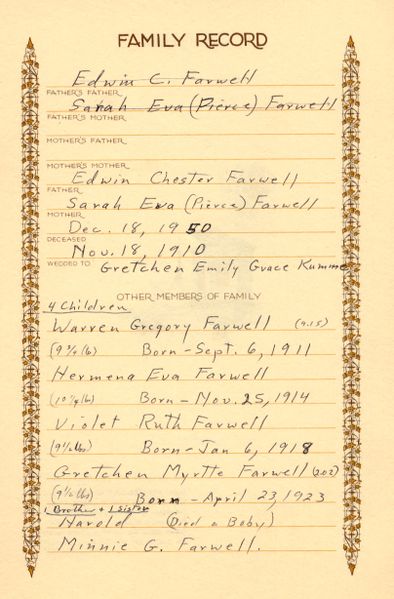 FAMILY RECORD
Edwin C. Farwell
FATHER'S FATHER
Sarah Eva (Pierce) Farwell
FATHER'S MOTHER
MOTHER'S FATHER
MOTHER'S MOTHER
Edwin Chester Farwell
FATHER
Sarah Eva (Pierce) Farwell
MOTHER
Dec. 18, 1950
DECEASED
Nov. 18, 1910
WEDDED TO Gretchen Emily Grace Kumme
OTHER MEMBERS OF FAMILY
4 Children
Warren Gregory Farwell (9.15)
(9 3/4 lb) Born - Sept. 6, 1911
Hermena Eva Farwell
(10 1/4 lb) Born - Nov. 25, 1914
Violet Ruth Farwell
(9 1/2 lbs) Born - Jan 6, 1918
Gretchen Myrtte Farwell (202)
(9 1/2 lbs) Born - April 23, 1923
1 Brother + 1 Sister
Harold (Died a Baby)
Minnie G. Farwell.